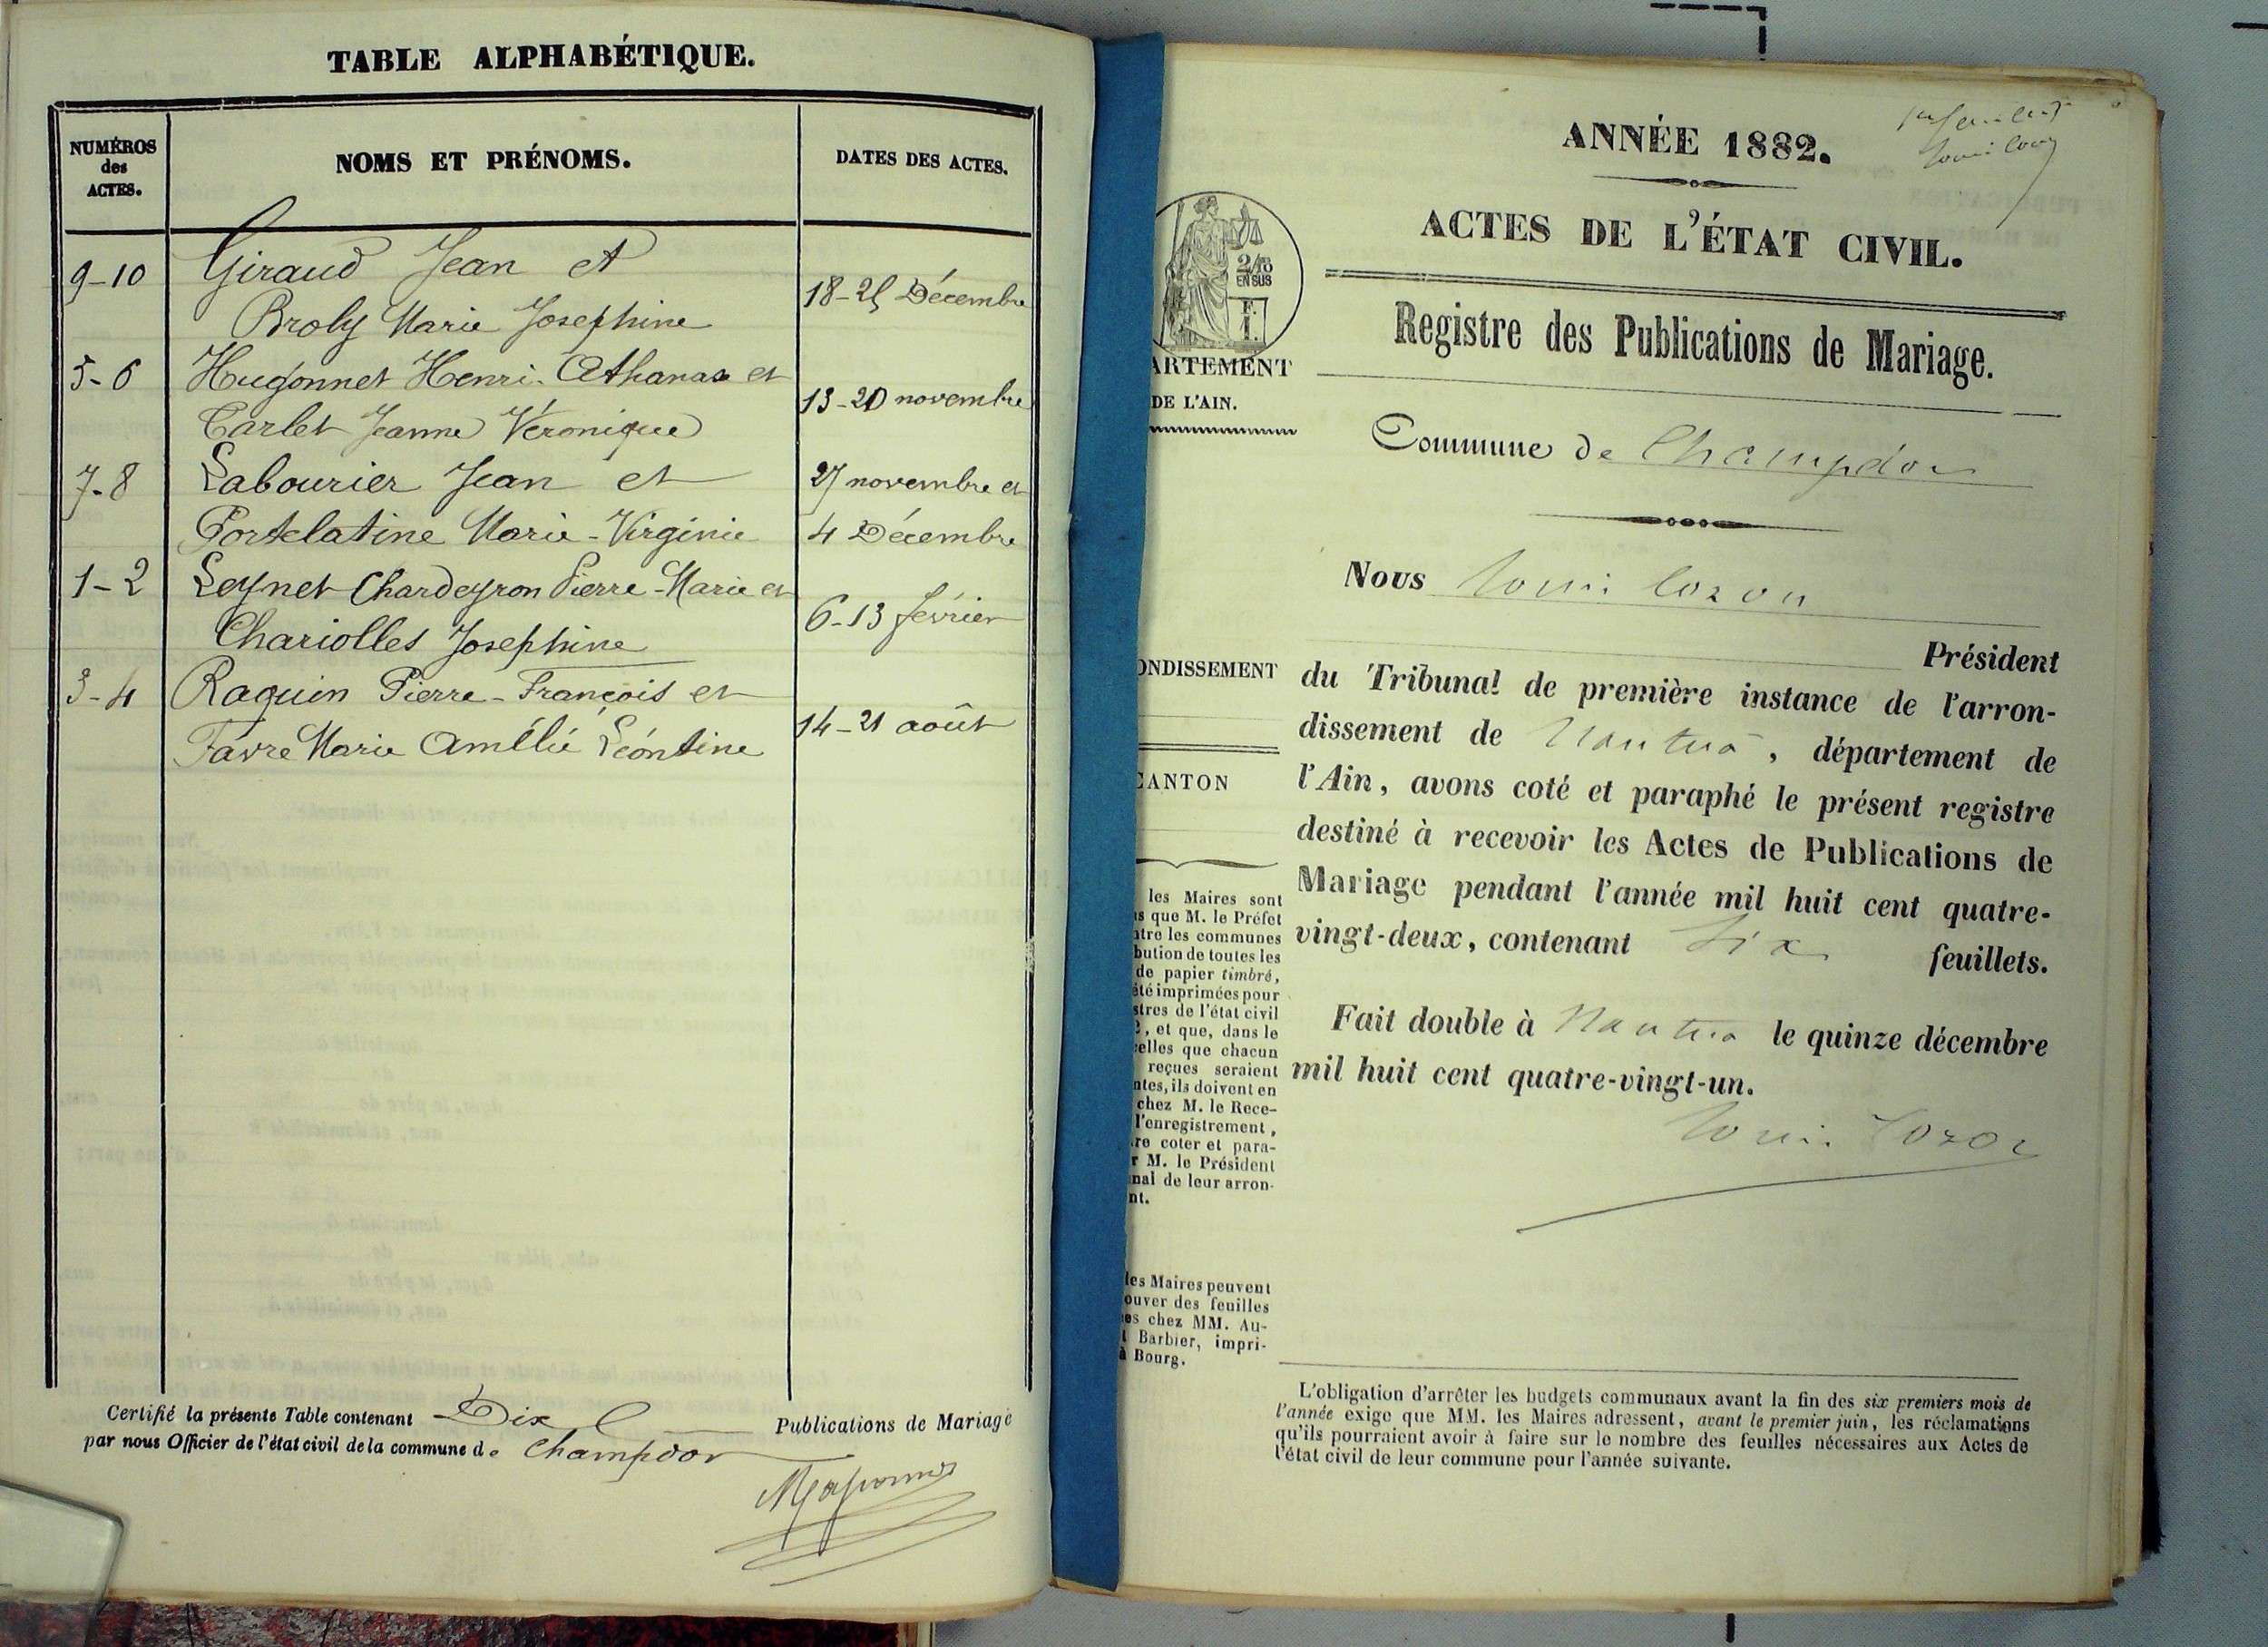 TABLE ALPHABÉTIQUE.
NUMÉROS des ACTES.
NOMS ET PRÉNOMS.
DATES DES ACTES.
9-10 Giraud Jean et
Broly Marie Josephine 18-25 Décembre
5-6 Hugonnet Henri-Athanase et
Carlet Jeanne Véronique 13-20 novembre
7-8 Labourier Jean et 27 novembre et
Portelatine Marie-Virginie 4 Décembre
1-2 Leynet Chardeyron Pierre-Marie et
Chariolles Josephine 6-13 février
3-4 Raquin Pierre-François et
Favre Marie Amélie Léontine 14-21 août
Certifié la présente Table contenant Dix Publications de Mariage
par nous Officier de l'état civil de la commune de Champdor
ANNÉE 1882.
ACTES DE L'ÉTAT CIVIL.
2/10
EN SUS
F.
1.
Registre des Publications de Mariage.
ARTEMENT
DE L'AIN.
Commune de Champdor
Nous
Président
ONDISSEMENT
du Tribunal de première instance de l'arron-
dissement de Nantua, département de
CANTON
l'Ain, avons coté et paraphé le présent registre
destiné à recevoir les Actes de Publications de
Mariage pendant l'année mil huit cent quatre-
vingt-deux, contenant six feuillets.
Fait double à Nantua le quinze décembre
mil huit cent quatre-vingt-un.
les Maires sont
s que M. le Préfet
ntre les communes
bution de toutes les
de papier timbré,
été imprimées pour
stres de l'état civil
2, et que, dans le
celles que chacun
reçues seraient
ntes, ils doivent en
chez M. le Rece-
l'enregistrement,
re coter et para-
r M. le Président
nal de leur arron-
nt.
les Maires peuvent
ouver des feuilles
es chez MM. Au-
t Barbier, impri-
à Bourg.
L'obligation d'arrêter les budgets communaux avant la fin des six premiers mois de
l'année exige que MM. les Maires adressent, avant le premier juin, les réclamations
qu'ils pourraient avoir à faire sur le nombre des feuilles nécessaires aux Actes de
l'état civil de leur commune pour l'année suivante.